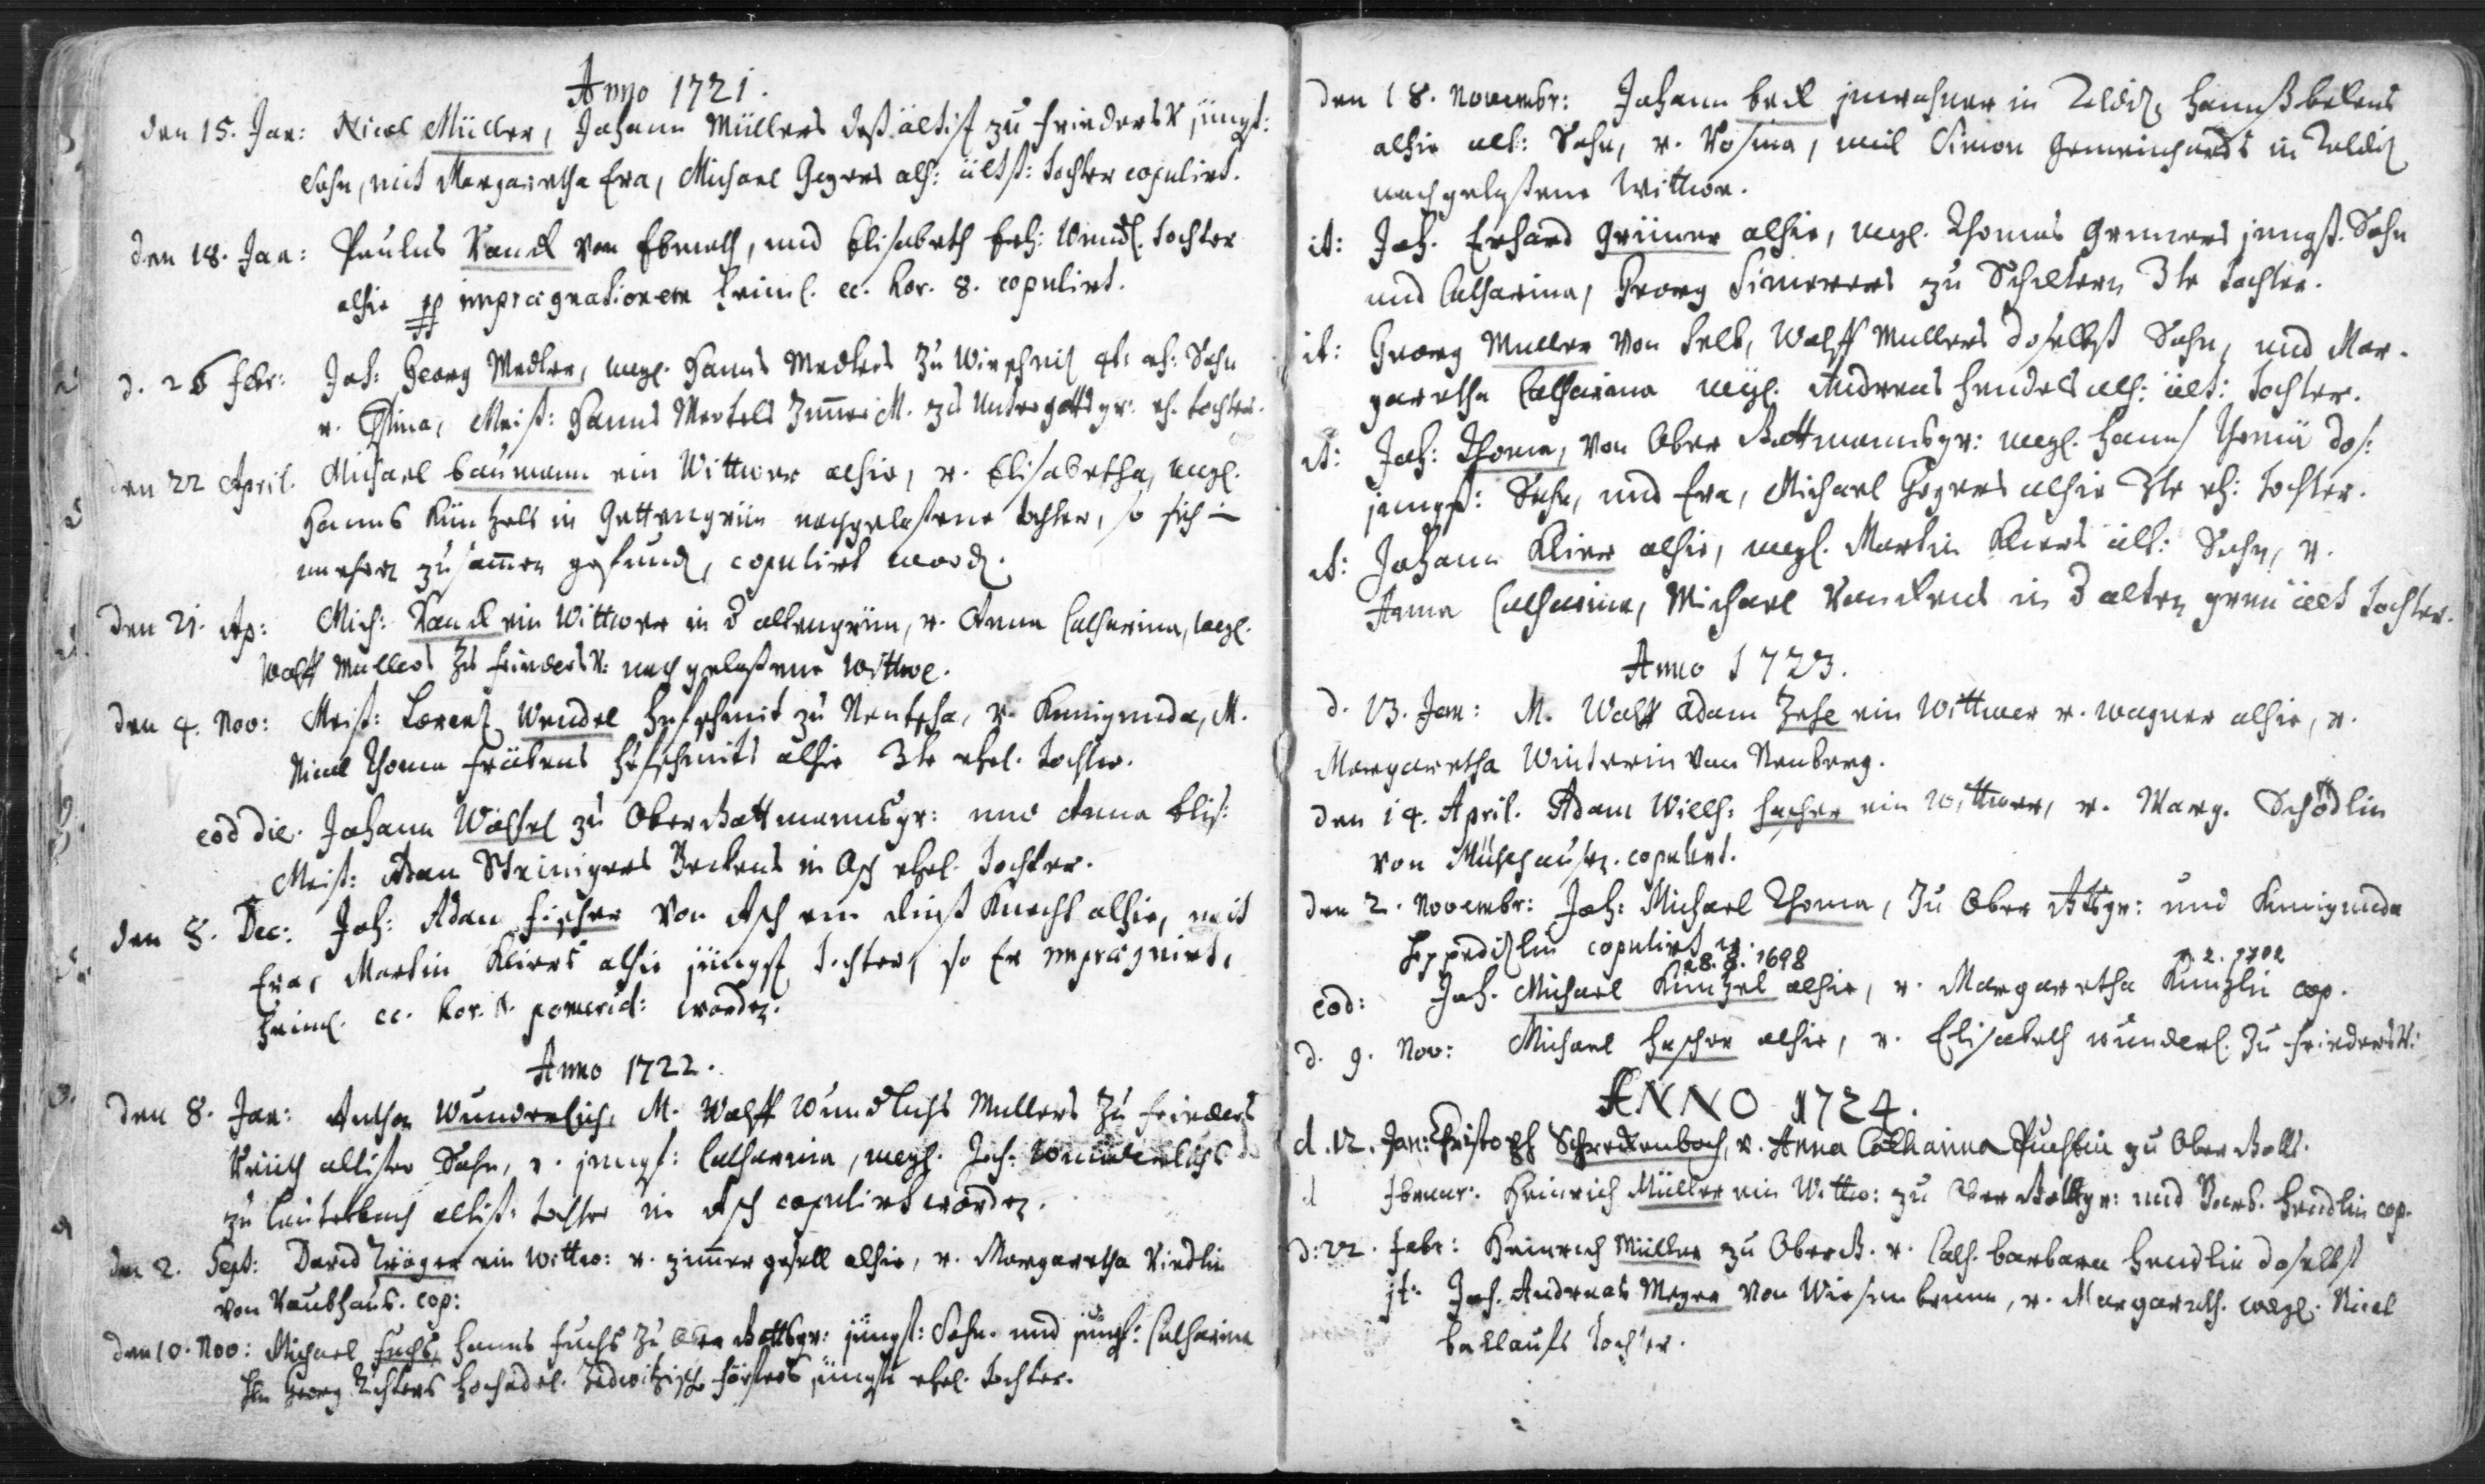 Anno 1721.
den 15. Jan: Nicol Müller, Johann Müllers deß ältist zu Friedersr. jüngst:
Sohn, mit Margaretha Eva, Michael Geyers alh: ältst: Tochter copulirt.
den 18. Jan: Paulus Ranck von Ebmath, und Elisabeth Erh: Wundl. Tochter
alhie pp impraegnationem heiml. cc. hor. 8. copulirt.
d. 26 febr: Joh: Georg Medler, weyl. Hanns Medlers zu Wirschniz 4t: eh: Sohn
v. Christina, Meist: Hanns Mertels Zimmer M. zu Untergottsgr: eh. Tochter.
den 22 April. Michael Baumann ein Wittwer alhie, v. Elisabetha, weyl.
Hanns Küntzels in Gettengrün nachgelaßene Tochter, so sich in
unehren zusammen gefund, copulirt word.
den 21. Ap: Mich: Ranck ein Wittwer in d altengrün, v. Anna Catharina, weyl.
Wolff Müllers zu Friedersr: nachgelaßene Wittwe.
den 4. Nov: Meist: Lorenz Wendel Hufschmit zu Rentscha, v. Kunigunda, M.
Nicol Thoma Fräbens Hufschmits alhie 3te ehel. Tochter.
eod die. Johann Wölfel zu Ober Rottmannsgr: und Anna Elis:
Meist: Adam Steinigers Beckens in Asch ehel. Tochter.
den 8. Dec: Joh: Adam Fischer von Asch ein dinst Knecht alhie, mit
Eva, Martin Kliers alhie jüngst Tochter, so Er impraegnirt,
heiml. cc. hor. pomerid: worden.
Anno 1722.
den 8. Jan: Anthon Wunderlich, M. Wolff Wundlichs Müllers zu Frieders
Reuth altister Sohn, v. jungf: Catharina, weyl. Joh: Wunderlichs
zu Lauterbach ältist: Tochter in Asch copulirt worden.
den 2. Sept: David Träger ein Wittw: v. zimmer gesell alhie, v. Margaretha Riedlin
von Raubhaus. cop:
den 10. Nov: Michael Fuchs, Hanns Fuchs zu Ober Rottsgr: jüngst: Sohn. und jungf: Catharina
Hn Georg Richters Hochadel. Zedwitzisch försters jüngste ehel. Tochter.
den 18. Novembr: Johann Beck inwohner in Zeldiz Hannß Bekens
alhie alt: Sohn, v. Rosina, weil Simon Gemeinhardts in Zeldiz
nachgelaßene Wittwe.
it: Joh. Erhard Grüner alhie, weyl. Thomas Gruners jungst. Sohn
und Catharina, Georg Simerers zu Schiltern 3te Tochter.
it: Georg Müller von Selb, Wolff Mullers daselbst Sohn, und Mar-
garetha Catharina weyl. Andreas Hendels alh: ält: Tochter.
it: Joh: Thoma, von Ober Rottmannsgr: weyl. Hanns Thomä das:
jungst: Sohn, und Eva, Michael Geyers alhie 3te eh: Tochter.
it: Johann Klier alhie, weyl. Martin Kliers ält: Sohn, v.
Anna Catharina, Michael Ranckens in d alten grün ält Tochter.
Anno 1723.
d. 13. Jan: M. Wolff Adam Zehe ein Wittwer v. Wagner alhie, v.
Margaretha Winterin von Neuberg.
den 14. April. Adam Willh: Hascher ein Wittwer, v. Marg. Schödlin
von Mülhausen. copulirt.
den 2. Novembr: Joh: Michael Thoma, zu Ober Rttsgr: und Kunigunda
copulirt w.
28. 8. 1698
2. 1702
eod: Joh. Michael Küntzel alhie, v. Margaretha Künzlin cop.
d. 9. Nov: Michael Hascher alhie, v. Elisabeth Wunderl. zu Friedersr:
ANNO 1724.
d. 12. Jan: Christoph Schreckenbach, v. Anna Catharina Puchtin zu Ober Rott.
d Februar. Heinrich Müller ein Wittw: zu Ober Rottgr: und Barb. Hendlin cop.
d: 22. Febr: Heinrich Müller zu Ober R. v. Cath. Barbara Hendlin daselbst
it: Joh. Andreas Meyer von Wiesenbrunn, v. Margareth. weyl. Nicol
Ballaufs Tochter.